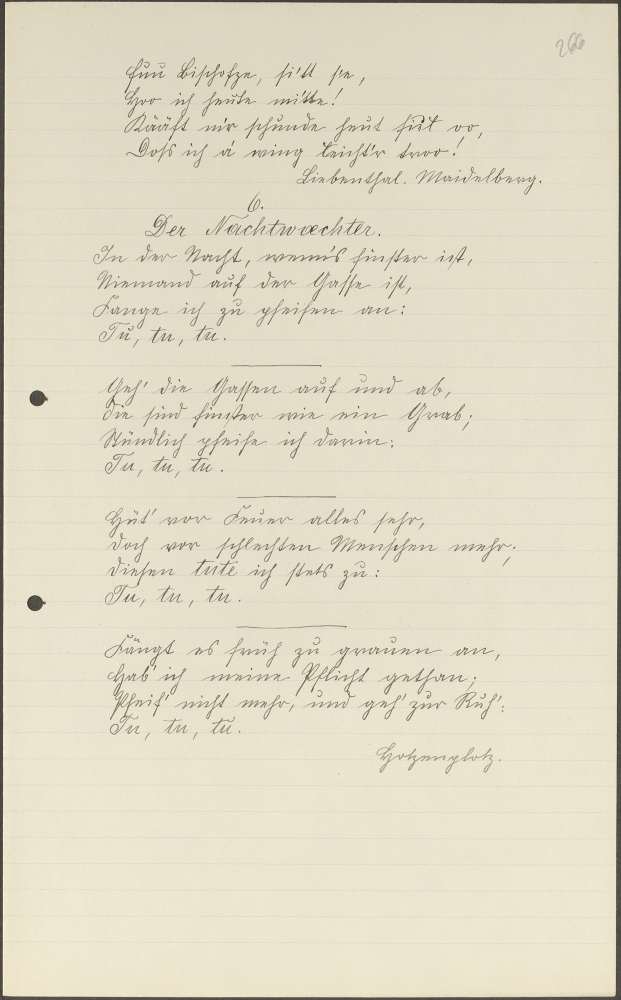 266
Fun Bischofze, si'tt se,
Hoo ich heute mitte!
Kääft mir schunde heut fül oo,
Doss ich á wing leicht'r troo!
Liebenthal. Maidelberg.
6.
Der Nachtwæchter.
In der Nacht, wenn's finster ist,
Niemand auf der Gasse ist,
Fange ich zu pfeifen an:
Tu, tu, tu.
Geh' die Gassen auf und ab,
Die sind finster wie ein Grab;
Stündlich pfeife ich darin:
Tu, tu, tu.
Hüt' vor Feuer alles sehr,
Doch vor schlechten Menschen mehr;
Diesen tute ich stets zu:
Tu, tu, tu.
Fängt es früh zu grauen an,
Hab' ich meine Pflicht gethan;
Pfeif' nicht mehr, und geh' zur Ruh':
Tu, tu, tu.
Hotzenplotz.